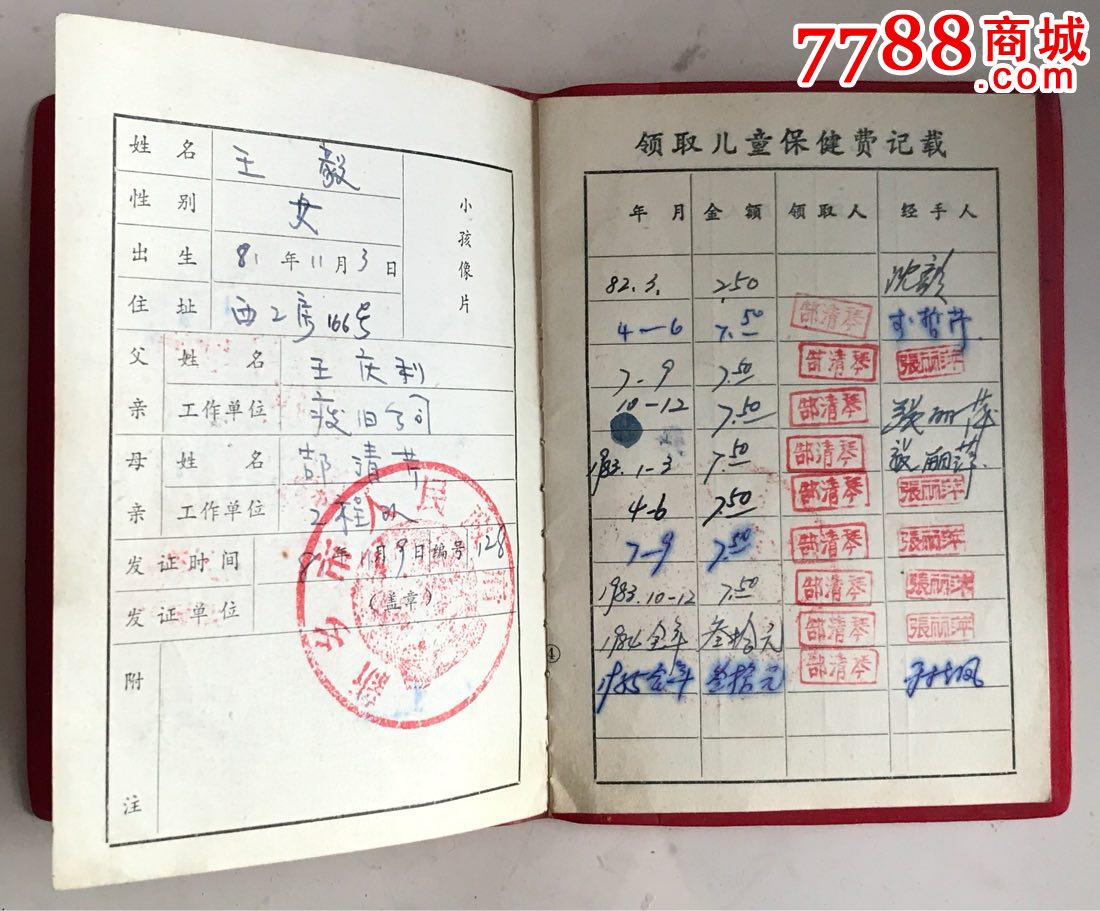 7788商城
.com
姓名 王毅
性别 女
出生 81年11月3日
住址 西工房166号
小孩像片
父亲 姓名 王庆利
工作单位 废旧公司
母亲 姓名 郜清芹
工作单位 工程队
发证时间 8 年11月9日 编号 128
发证单位 (盖章)
新乡市人民
附注
领取儿童保健费记载
年月 金额 领取人 经手人
82.3. 2.50 沈彭
4-6 7.50 郜清琴
7-9 7.50 郜清琴 張丽萍
10-12 7.50 郜清琴 张丽萍
1983.1-3 7.50 郜清琴 张丽萍
4-6 7.50 郜清琴 張丽萍
7-9 7.50 郜清琴 張丽萍
1983.10-12 7.50 郜清琴 張丽萍
1984全年 叁拾元 郜清琴 張丽萍
1985全年 叁拾元 郜清琴
④